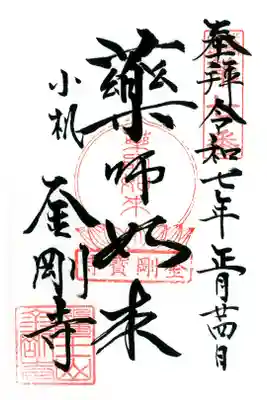 奉拝 令和七年 正月廿四日
藥師如来
小机 金剛寺